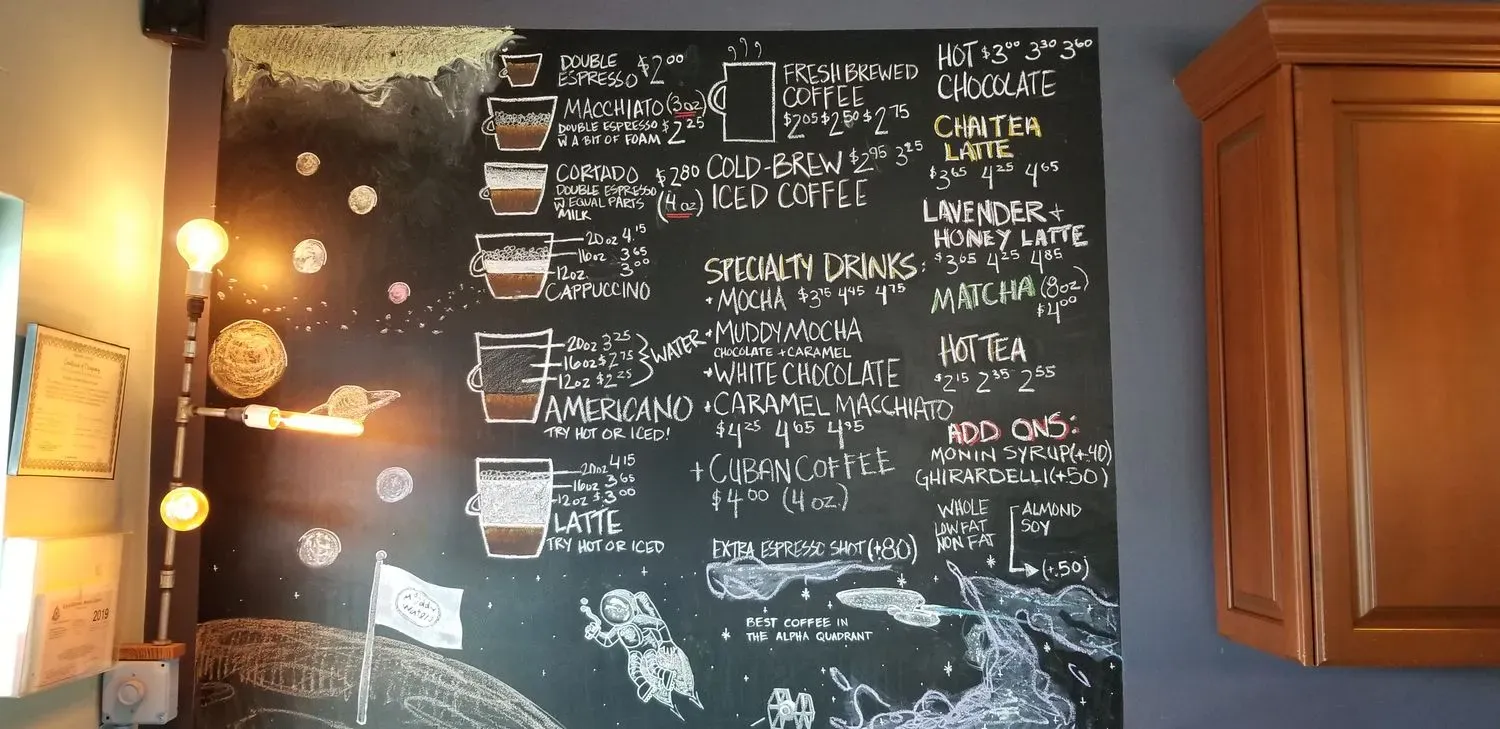 DOUBLE
ESPRESSO $2.00
MACCHIATO (3oz)
DOUBLE ESPRESSO $2.25
W A BIT OF FOAM
CORTADO $2.80
DOUBLE ESPRESSO
W EQUAL PARTS (4oz)
MILK
20oz 4.15
16oz 3.65
12oz 3.00
CAPPUCCINO
20oz 3.25
16oz $2.75
12oz $2.25
WATER
AMERICANO
TRY HOT OR ICED!
20oz 4.15
16oz 3.65
12oz $3.00
LATTE
TRY HOT OR ICED
FRESH BREWED
COFFEE
$2.05 $2.50 $2.75
COLD-BREW $2.95 3.25
ICED COFFEE
SPECIALTY DRINKS:
+ MOCHA $3.75 4.45 4.75
+ MUDDY MOCHA
CHOCOLATE + CARAMEL
+ WHITE CHOCOLATE
+ CARAMEL MACCHIATO
$4.25 4.65 4.95
+ CUBAN COFFEE
$4.00 (4 oz.)
EXTRA ESPRESSO SHOT (+.80)
BEST COFFEE IN
THE ALPHA QUADRANT
HOT $3.00 3.30 3.60
CHOCOLATE
CHAI TEA
LATTE
$3.65 4.25 4.65
LAVENDER +
HONEY LATTE
$3.65 4.25 4.85
MATCHA (8oz)
$4.00
HOT TEA
$2.15 2.35 2.55
ADD ONS:
MONIN SYRUP (+.40)
GHIRARDELLI (+.50)
WHOLE
LOW FAT
NON FAT
ALMOND
SOY
(+.50)
Muddy
Waters
2019